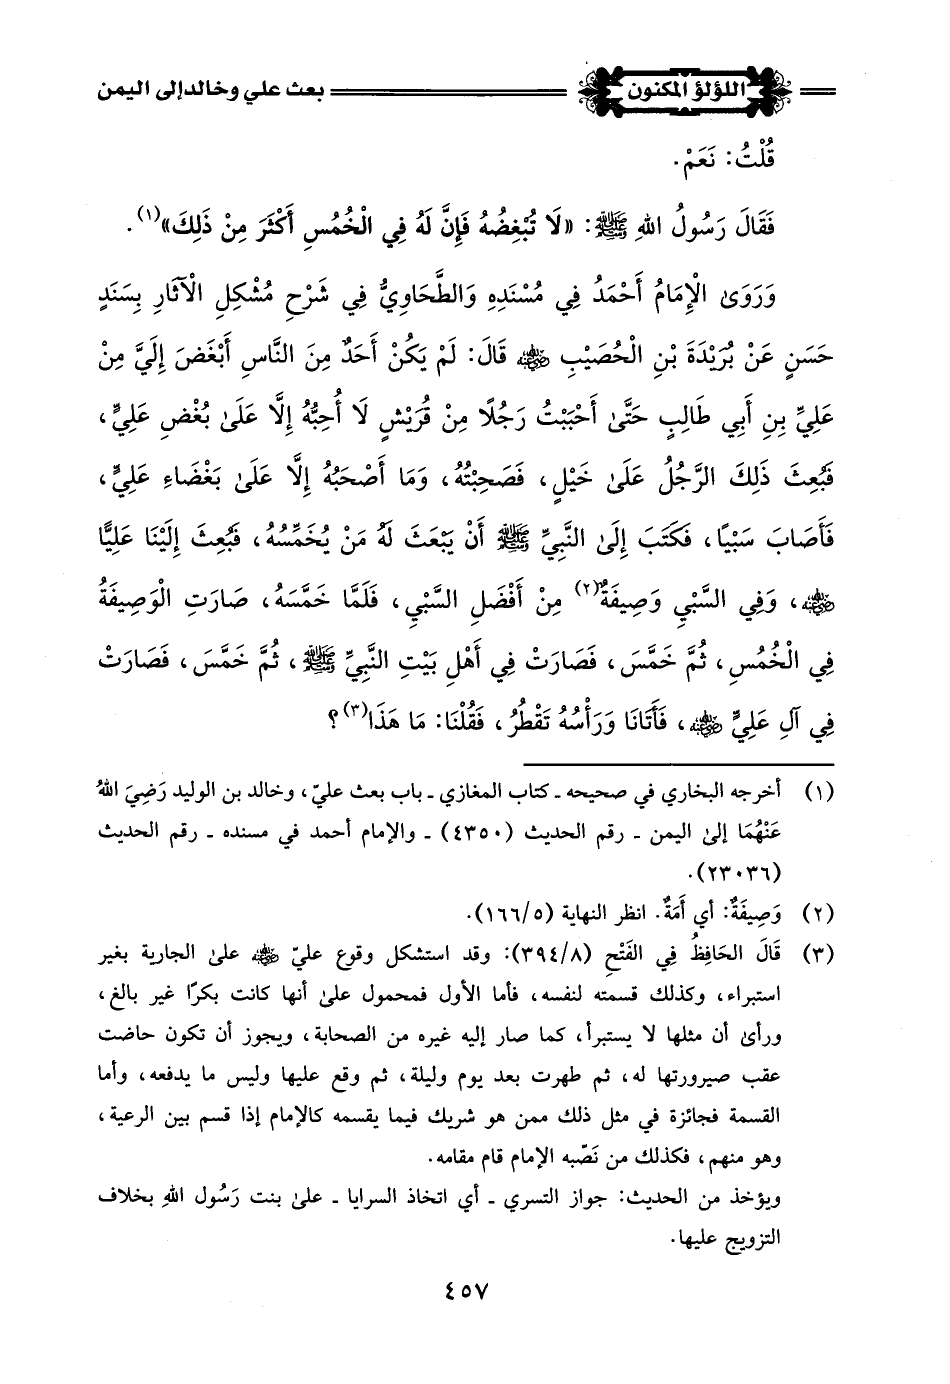 اللؤلؤ المكنون بعث علي وخالد إلى اليمن
قُلْتُ: نَعَمْ.
فَقَالَ رَسُولُ اللهِ ﷺ: «لَا تُبْغِضْهُ فَإِنَّ لَهُ فِي الْخُمُسِ أَكْثَرَ مِنْ ذَلِكَ»(١).
وَرَوَىٰ الْإِمَامُ أَحْمَدُ فِي مُسْنَدِهِ وَالطَّحَاوِيُّ فِي شَرْحِ مُشْكِلِ الْآثَارِ بِسَنَدٍ
حَسَنٍ عَنْ بُرَيْدَةَ بْنِ الْحُصَيْبِ رضي الله عنه قَالَ: لَمْ يَكُنْ أَحَدٌ مِنَ النَّاسِ أَبْغَضَ إِلَيَّ مِنْ
عَلِيِّ بِنِ أَبِي طَالِبٍ حَتَّىٰ أَحْبَبْتُ رَجُلًا مِنْ قُرَيْشٍ لَا أُحِبُّهُ إِلَّا عَلَىٰ بُغْضِ عَلِيٍّ،
فَبُعِثَ ذَلِكَ الرَّجُلُ عَلَىٰ خَيْلٍ، فَصَحِبْتُهُ، وَمَا أَصْحَبُهُ إِلَّا عَلَىٰ بَغْضَاءِ عَلِيٍّ،
فَأَصَابَ سَبْيًا، فَكَتَبَ إِلَىٰ النَّبِيِّ ﷺ أَنْ يَبْعَثَ لَهُ مَنْ يُخَمِّسُهُ، فَبُعِثَ إِلَيْنَا عَلِيًّا
رضي الله عنه، وَفِي السَّبْيِ وَصِيفَةٌ(٢) مِنْ أَفْضَلِ السَّبْيِ، فَلَمَّا خَمَّسَهُ، صَارَتِ الْوَصِيفَةُ
فِي الْخُمُسِ، ثُمَّ خَمَّسَ، فَصَارَتْ فِي أَهْلِ بَيْتِ النَّبِيِّ ﷺ، ثُمَّ خَمَّسَ، فَصَارَتْ
فِي آلِ عَلِيٍّ رضي الله عنه، فَأَتَانَا وَرَأْسُهُ تَقْطُرُ، فَقُلْنَا: مَا هَذَا(٣)؟
(١) أخرجه البخاري في صحيحه ـ كتاب المغازي ـ باب بعث عليّ، وخالد بن الوليد رَضِيَ اللهُ
عَنْهُمَا إلىٰ اليمن ـ رقم الحديث (٤٣٥٠) ـ والإمام أحمد في مسنده ـ رقم الحديث
(٢٣٠٣٦).
(٢) وَصِيفَةٌ: أي أَمَةٌ. انظر النهاية (١٦٦/٥).
(٣) قَالَ الحَافِظُ فِي الفَتْحِ (٣٩٤/٨): وقد استشكل وقوع عليّ رضي الله عنه علىٰ الجارية بغير
استبراء، وكذلك قسمته لنفسه، فأما الأول فمحمول علىٰ أنها كانت بكرًا غير بالغ،
ورأىٰ أن مثلها لا يستبرأ، كما صار إليه غيره من الصحابة، ويجوز أن تكون حاضت
عقب صيرورتها له، ثم طهرت بعد يوم وليلة، ثم وقع عليها وليس ما يدفعه، وأما
القسمة فجائزة في مثل ذلك ممن هو شريك فيما يقسمه كالإمام إذا قسم بين الرعية،
وهو منهم، فكذلك من نَصّبه الإمام قام مقامه.
ويؤخذ من الحديث: جواز التسري ـ أي اتخاذ السرايا ـ علىٰ بنت رَسُول اللهِ بخلاف
التزويج عليها.
٤٥٧